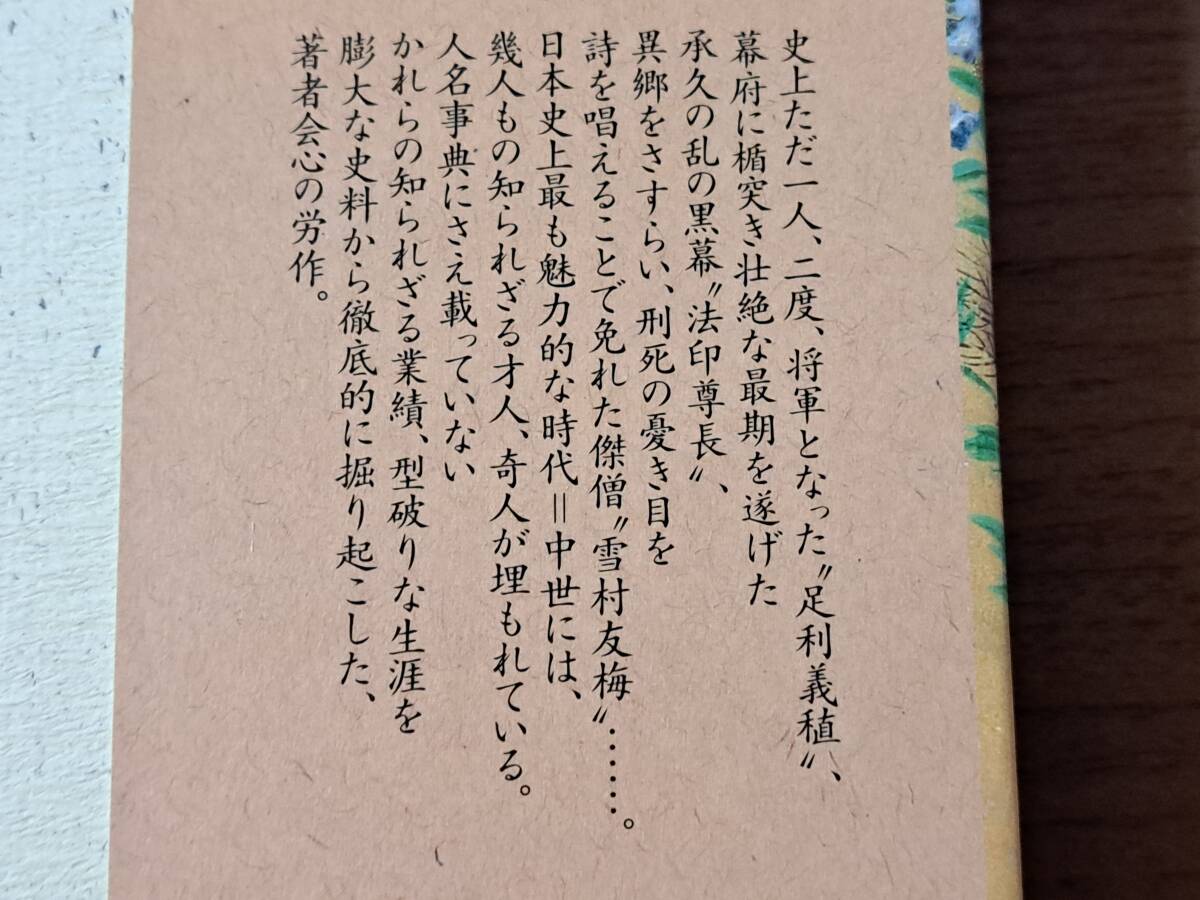 史上ただ一人、二度、将軍となった〝足利義稙〟、
幕府に楯突き壮絶な最期を遂げた
承久の乱の黒幕〝法印尊長〟、
異郷をさすらい、刑死の憂き目を
詩を唱えることで免れた傑僧〝雪村友梅〟……。
日本史上最も魅力的な時代＝中世には、
幾人もの知られざる才人、奇人が埋もれている。
人名事典にさえ載っていない
かれらの知られざる業績、型破りな生涯を
膨大な史料から徹底的に掘り起こした、
著者会心の労作。